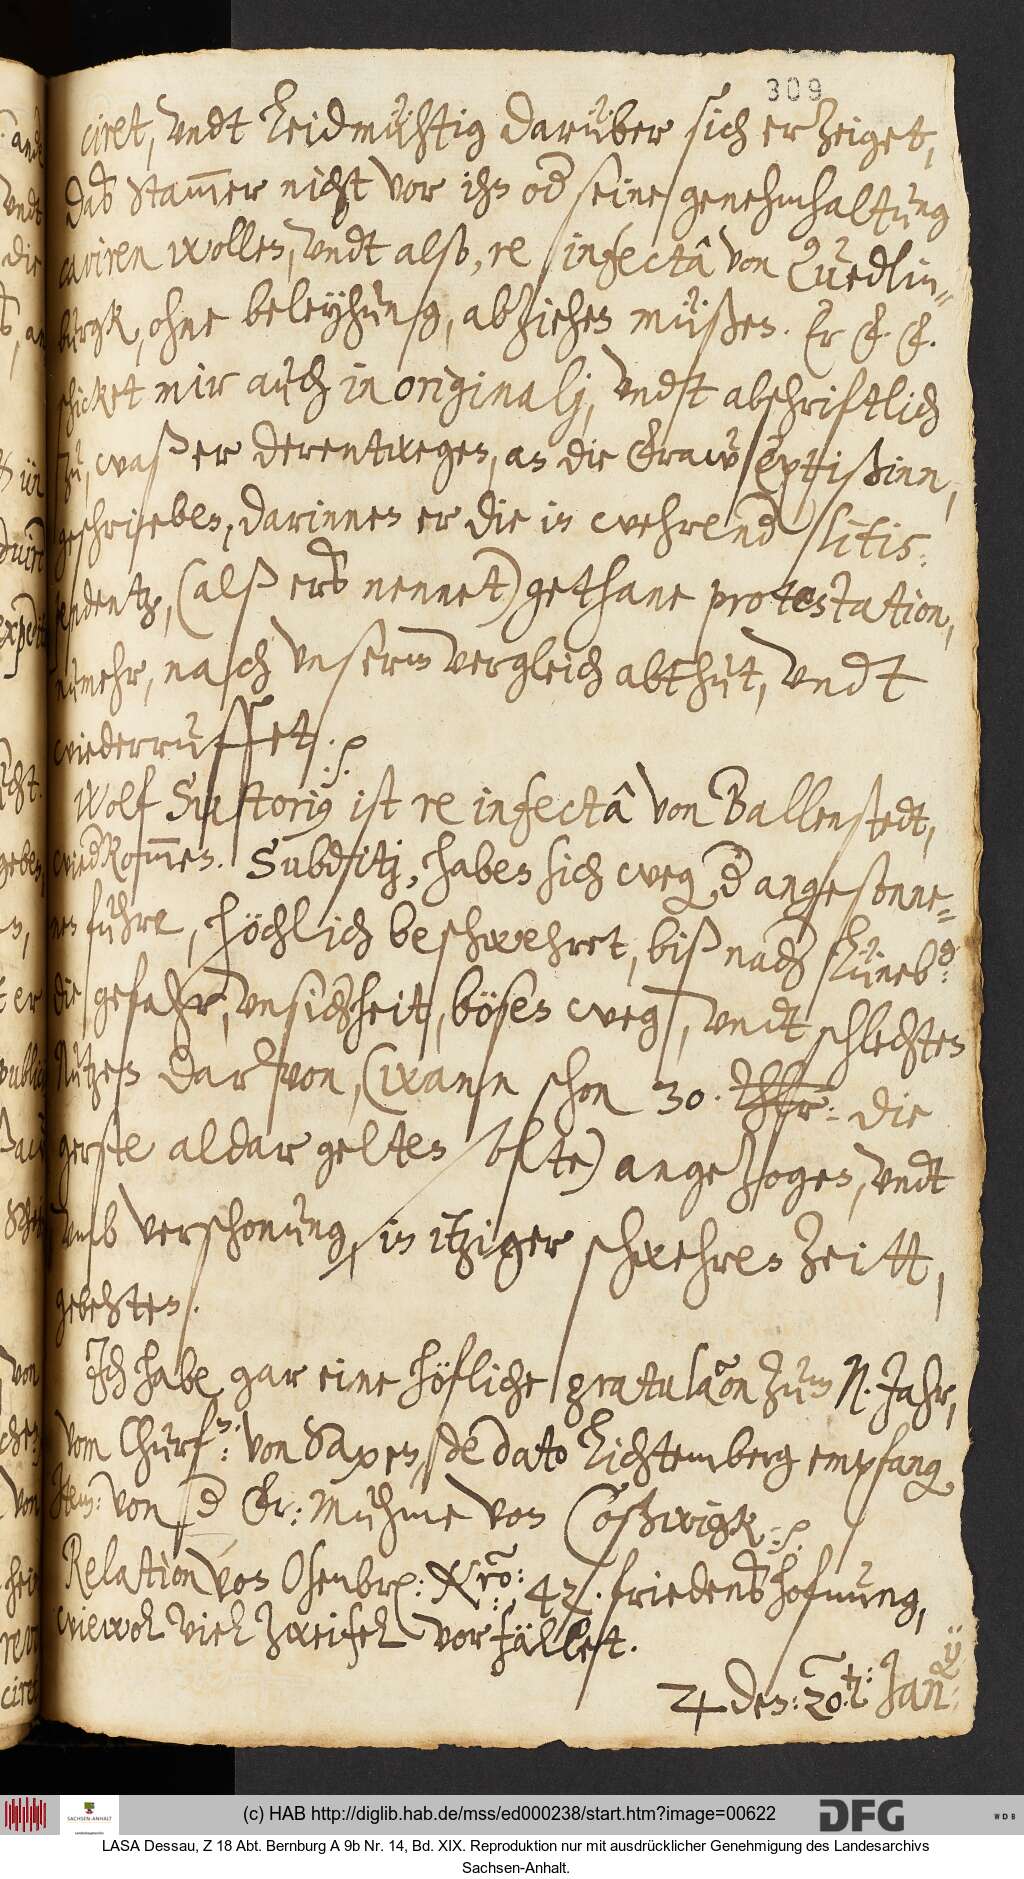 309
ciret, undt leidmühtig darüber sich erzeiget,
daß Stam̄er nicht vor ihn od seine genehmhaltung
caviren wollen, undt also, re infectâ von Quedlin-
burgk, ohne beleyhung, abziehen müßen. Er E. E.
schicket mir auch in originalj, undt abschriftlich
zu, waß er derentwegen, an die Fraw Eptißinn,
geschrieben, darinnen er die in wehrend litis:
pendentz, (alß erß nennet) gethane protestation,
numehr, nach unserm vergleich abthut, undt
wiederruffet. p.
Wolf Sutorius ist re infectâ von Ballenstedt,
wiedkom̄en. Subditj, haben sich weg d angesonne-
nen fuhre, höchlich beschwehret, biß nach Lüneb:
die gefahr, unsicherheit, bösen weg, undt schlechten
Nutzen darvon, (wann schon 30. Thlr: die
gerste aldar gelten solte) angezogen, undt
umb verschonung, in itziger schwehren Zeitt,
gebehten.
Ich habe gar eine höfliche gratulaõn zum N. Jahr,
vom Churf: von Saxen, de dato Lichtemberg empfang
Item: von d Fr: Muhme von Coßwigk: p.
Relation von Osenbr: Nro: 42. friedenß hofnung,
wiewol viel Zweifel vorfället.
♃ den: 20. Jan:
(c) HAB http://diglib.hab.de/mss/ed000238/start.htm?image=00622
SACHSEN-ANHALT
DFG
WDB
LASA Dessau, Z 18 Abt. Bernburg A 9b Nr. 14, Bd. XIX. Reproduktion nur mit ausdrücklicher Genehmigung des Landesarchivs
Sachsen-Anhalt.